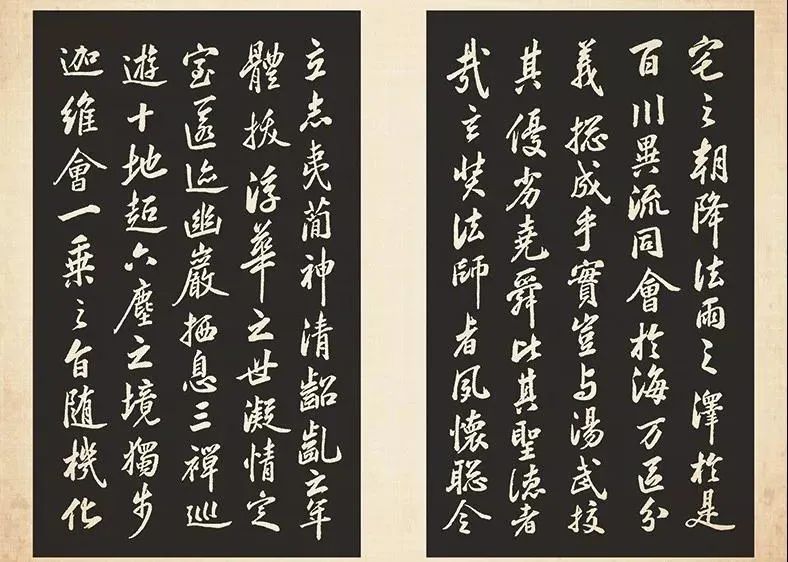 宅之朝降法雨之澤於是
百川異流同會於海万區分
義揔成乎實豈与湯武挍
其優劣堯舜比其聖德者
哉玄奘法師者夙懷聰令
立志夷簡神清齠齔之年
體拔浮華之世凝情定
室匿迹幽巖栖息三禪巡
遊十地超六塵之境獨步
迦維會一乘之旨随機化